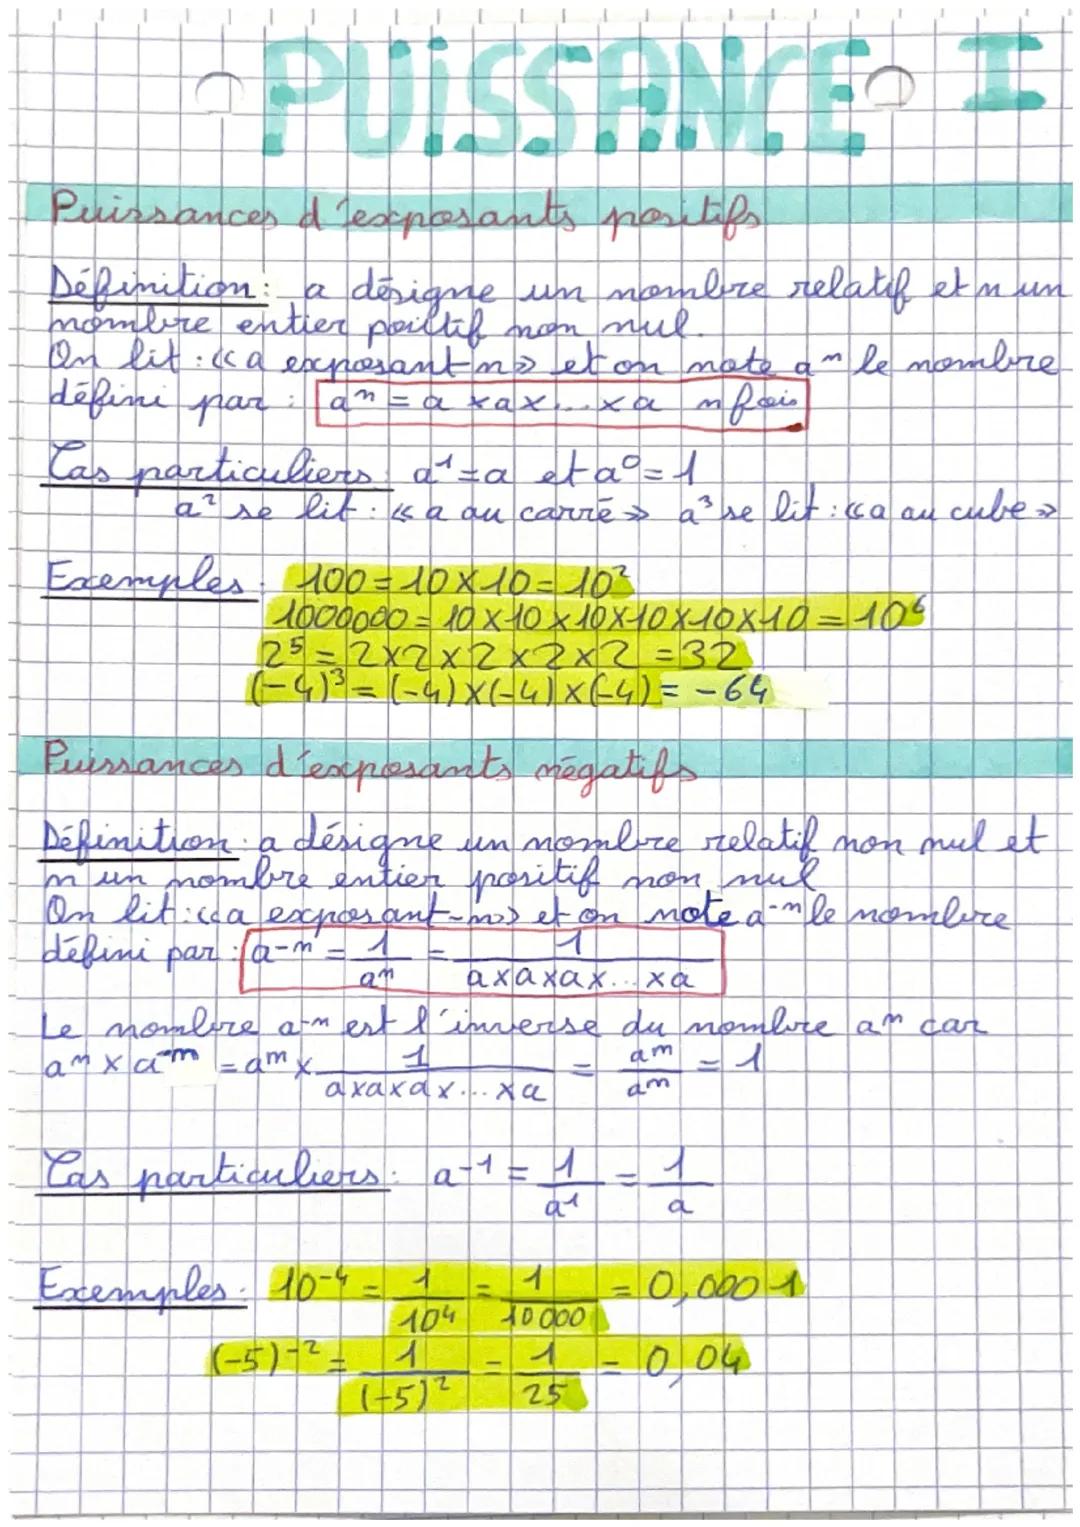 PUiSSANCE I
Puissances d'exposants positifs
Définition: a désigne un nombre relatif et n un
nombre entier poiltif non nul.
On lit : «a exposant n» et on note aⁿ le nombre
défini par : aⁿ = a × a × ... × a n fois
Cas particuliers: a¹ = a et a⁰ = 1
a² se lit : «a au carré» a³ se lit : «a au cube»
Exemples: 100 = 10 × 10 = 10²
1000000 = 10 × 10 × 10 × 10 × 10 × 10 = 10⁶
2⁵ = 2 × 2 × 2 × 2 × 2 = 32
(-4)³ = (-4) × (-4) × (-4) = -64
Puissances d'exposants négatifs
Définition: a désigne un nombre relatif non nul et
n un nombre entier positif non nul
On lit : «a exposant -n» et on note a⁻ⁿ le nombre
défini par : a⁻ⁿ = 1/aⁿ = 1/(a×a×a×...×a)
Le nombre a⁻ⁿ est l'inverse du nombre aⁿ car
aⁿ × a⁻ⁿ = aⁿ × 1/(a×a×a×...×a) = aⁿ/aⁿ = 1
Cas particuliers: a⁻¹ = 1/a¹ = 1/a
Exemples: 10⁻⁴ = 1/10⁴ = 1/10000 = 0,0001
(-5)⁻² = 1/(-5)² = 1/25 = 0,04